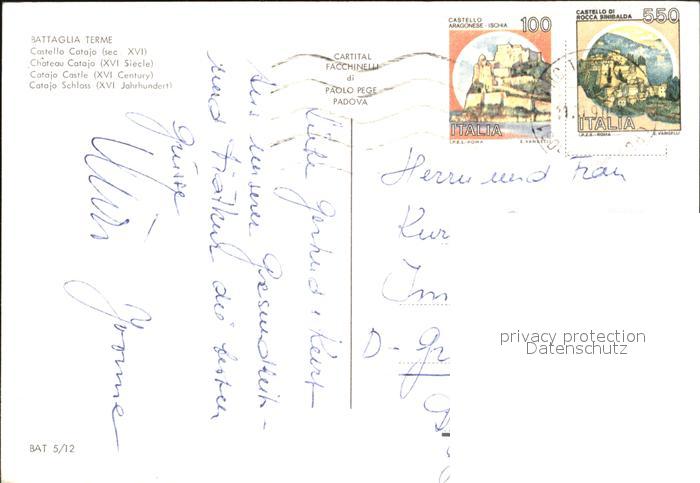 BATTAGLIA TERME
Castello Catajo (sec. XVI)
Château Catajo (XVI Siècle)
Catajo Castle (XVI Century)
Catajo Schloss (XVI Jahrhundert)
CARTITAL
FACCHINELLI
di
PAOLO PEGE
PADOVA
CASTELLO
ARAGONESE - ISCHIA
100
ITALIA
I.P.Z.S. - ROMA
E. VANGELLI
CASTELLO DI
ROCCA SINIBALDA
550
ITALIA
I.P.Z.S. - ROMA
E. VANGELLI
Liebe Gertrud u. Kurt
Aus unserer Gesundheit-
und die besten
Grüsse
Yvonne
Herrn und Frau
Kur
Im
D - Gr
privacy protection
Datenschutz
BAT 5/12